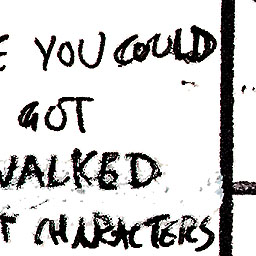 E YOU COULD
GOT
WALKED
T CHARACTERS